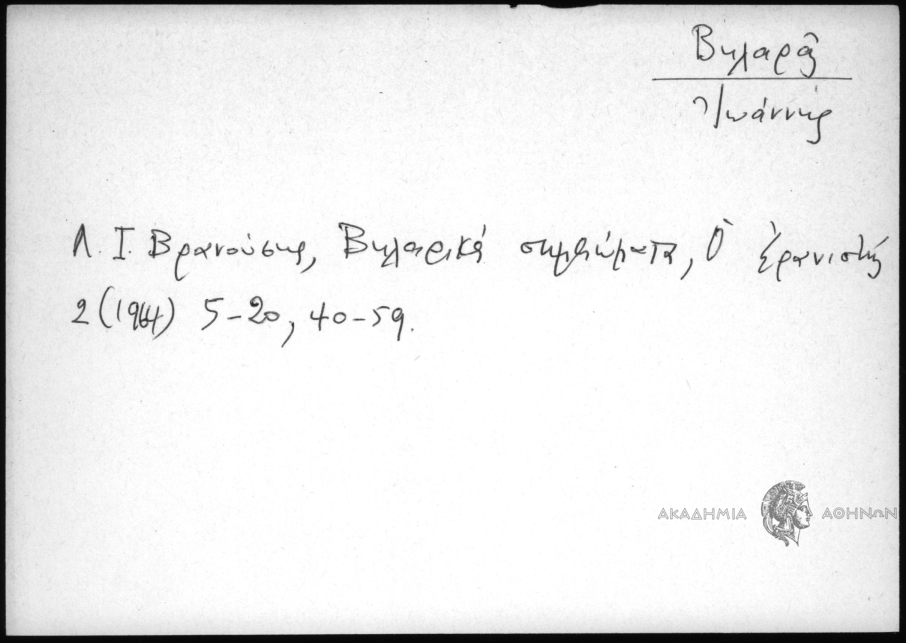 Βηλαρᾶ
Ἰωάννης
Λ. Ι. Βρανούσης, Βηλαρικά σημειώματα, Ὁ Ἐρανιστής
2 (1964) 5-20, 40-59.
ΑΚΑΔΗΜΙΑ ΑΘΗΝΩΝ